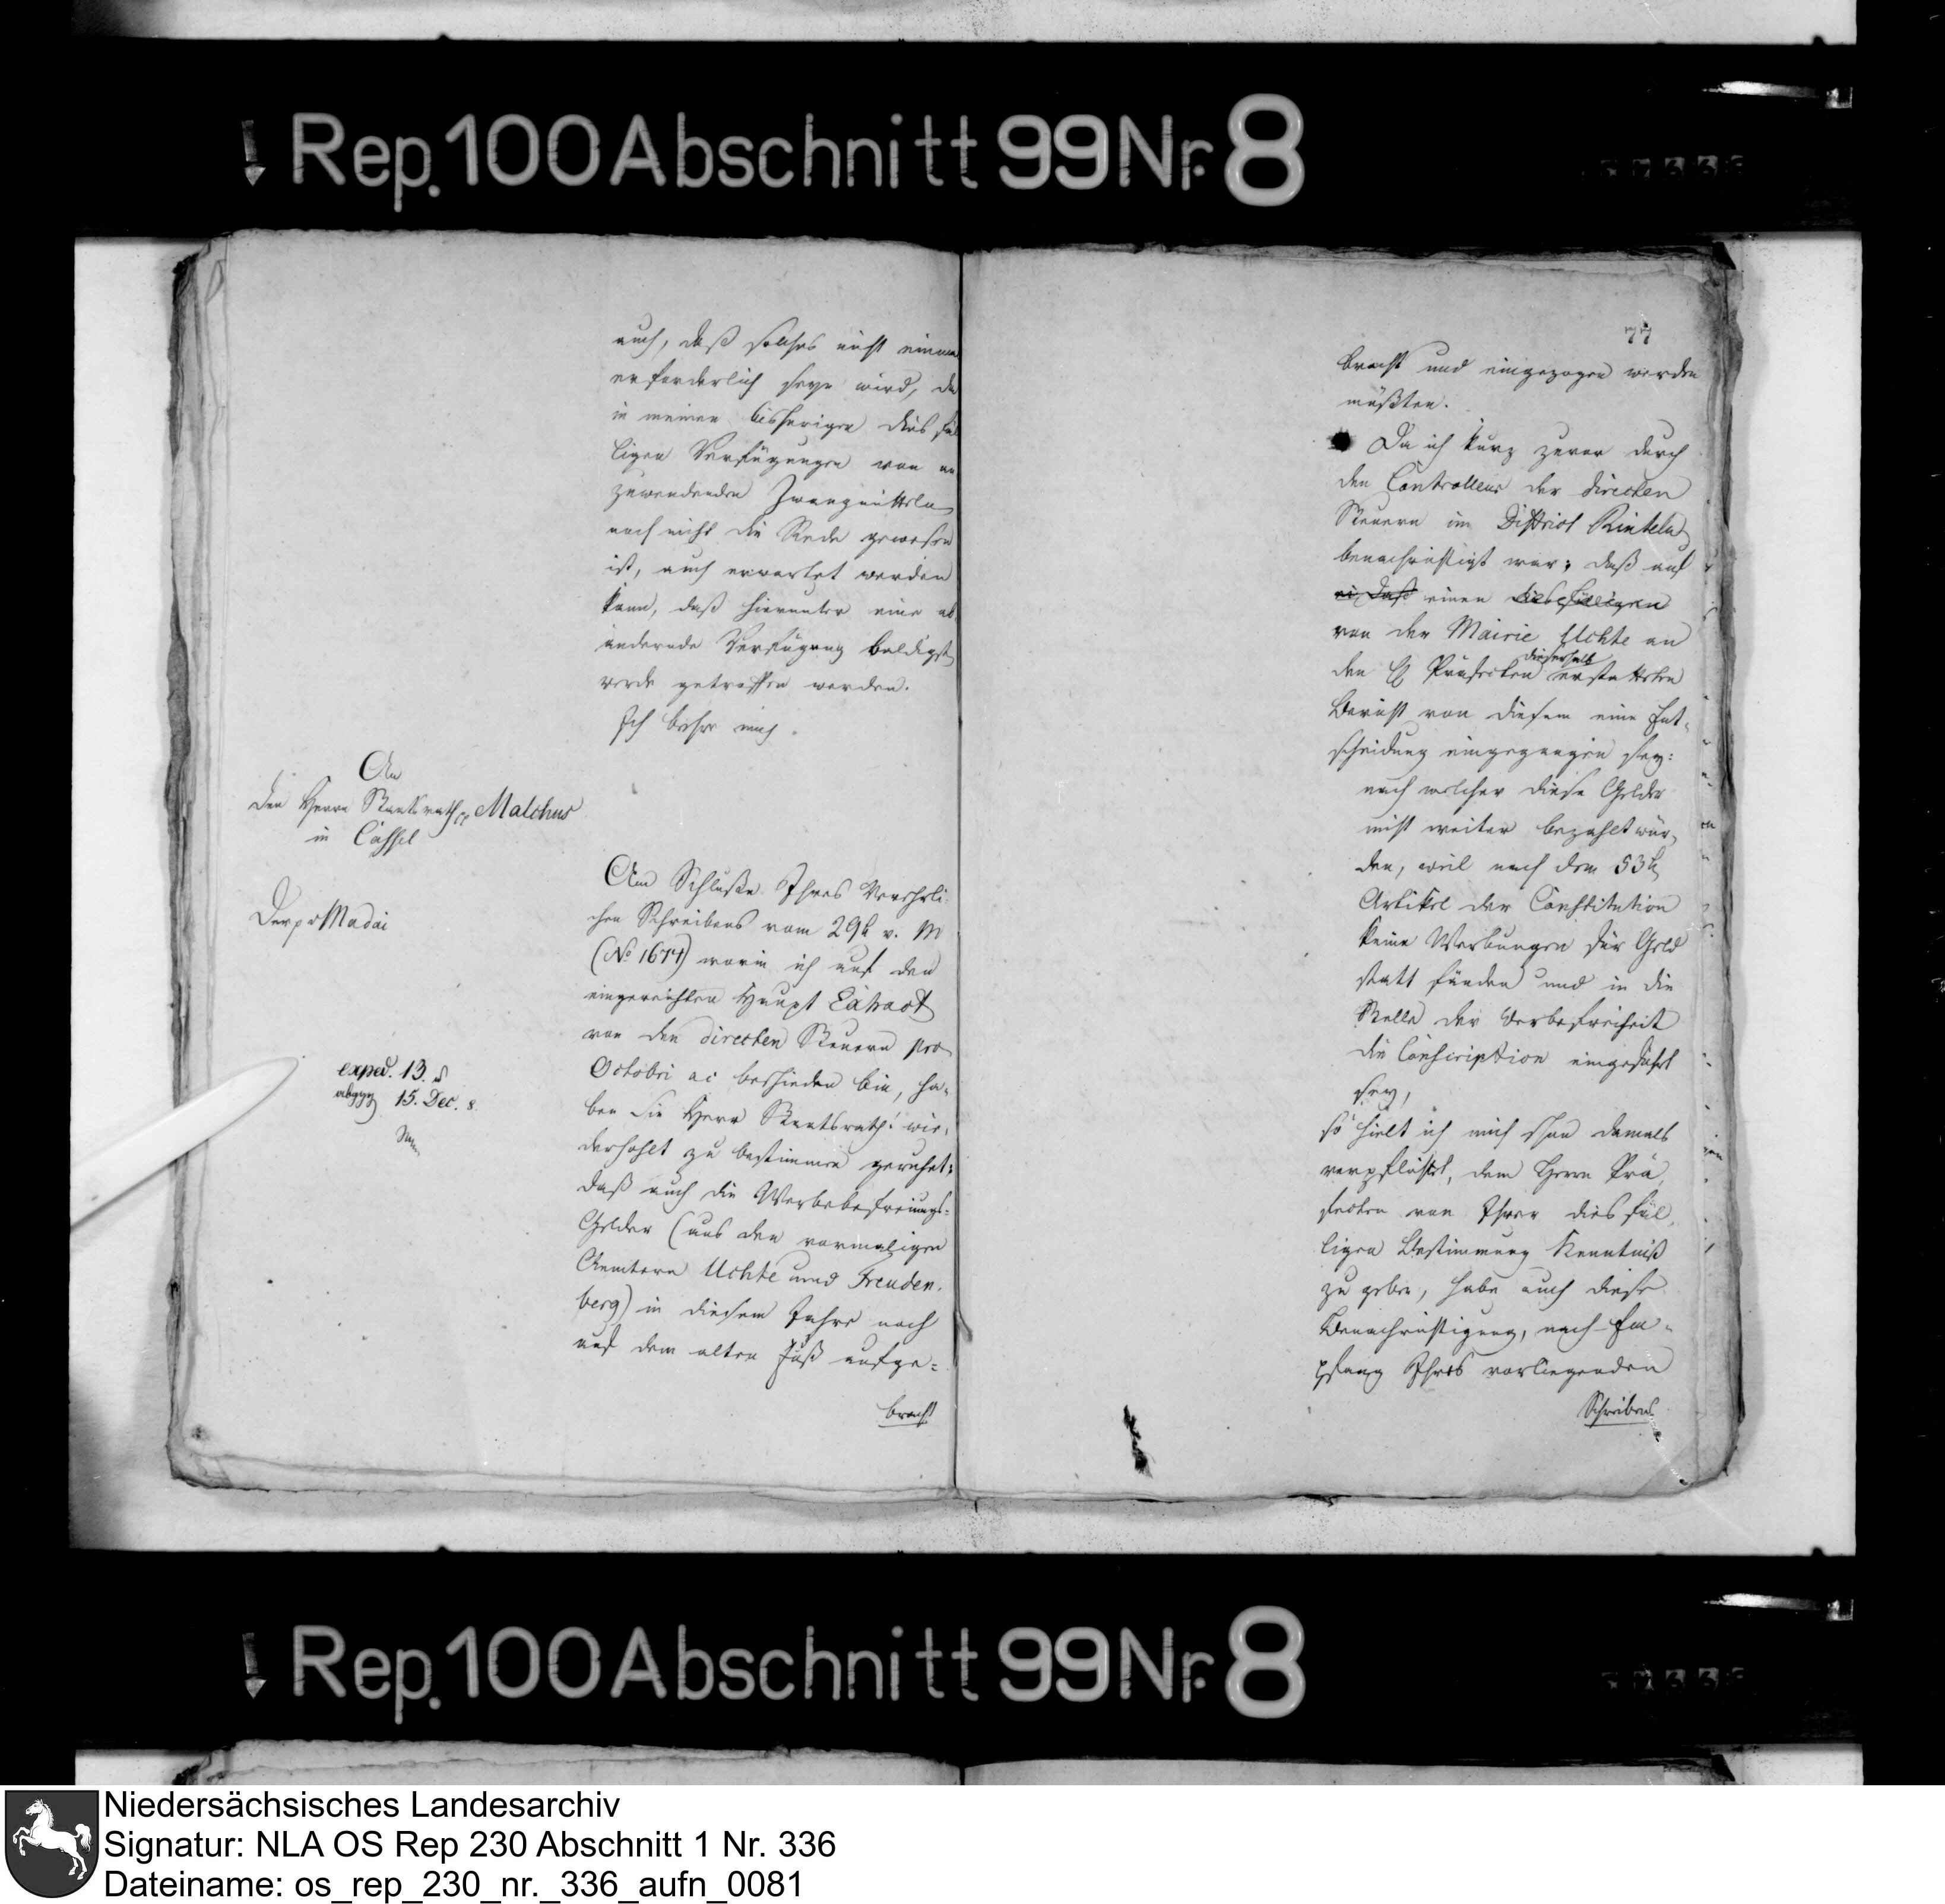 Rep. 100 Abschnitt 99 Nr. 8
auch, daß solches nicht einma
erforderlich seyn wird, da
in meinen bisherigen dies fäl
ligen Verfügungen von an
zuwendenden Zwangmitteln
noch nicht die Rede gewesen
ist, auch erwartet werden
kann, daß hierunter eine ab
ändernde Verfügung baldigst
werde getroffen werden.
Ich beehre mich.
An
den Herrn Staatsrath Malchus
in Cassel
Madai
exped. 13.
15. Dec. 8.
Am Schluße Ihres Verehrli
chen Schreibens vom 29t v. M
(No 1674) worin ich auf den
eingereichten Haupt Extract
von den directen Steuern pro
Octobri ac beschieden bin, ha-
ben Sie Herr Staatsrath! wie-
derhohlt zu bestimmen geruhet:
daß auch die Werbebefreiungs-
Gelder (aus den vormaligen
Aemtern Uchte und Freuden-
berg) in diesem Jahre noch
auf dem alten Fuß aufge=
bracht
77
bracht und eingezogen werden
müßten.
Da ich kurz zuvor durch
den Controlleur der directen
Steuern im District Rinteln
benachrichtigt war; daß auf
einen
von der Mairie Uchte an
dieserhalb
den H Präfecten erstatteten
Bericht von diesem eine Ent-
scheidung eingegangen sey:
nach welcher diese Gelder
nicht weiter bezahlt wür-
den, weil nach dem 53t
Artikel der Constitution
keine Werbungen für Geld
statt fänden und in die
Stelle der Werbefreiheit
die Conscription eingeführt
sey,
so hielt ich mich schon damals
verpflichtet, dem Herrn Prä
fecten von Ihrer dies fäl
ligen Bestimmung Kenntniß
zu geben, habe auch diese
Benachrichtigung, nach Em-
pfang Ihres vorliegenden
Schreibens
Rep. 100 Abschnitt 99 Nr. 8
Niedersächsisches Landesarchiv
Signatur: NLA OS Rep 230 Abschnitt 1 Nr. 336
Dateiname: os_rep_230_nr._336_aufn_0081